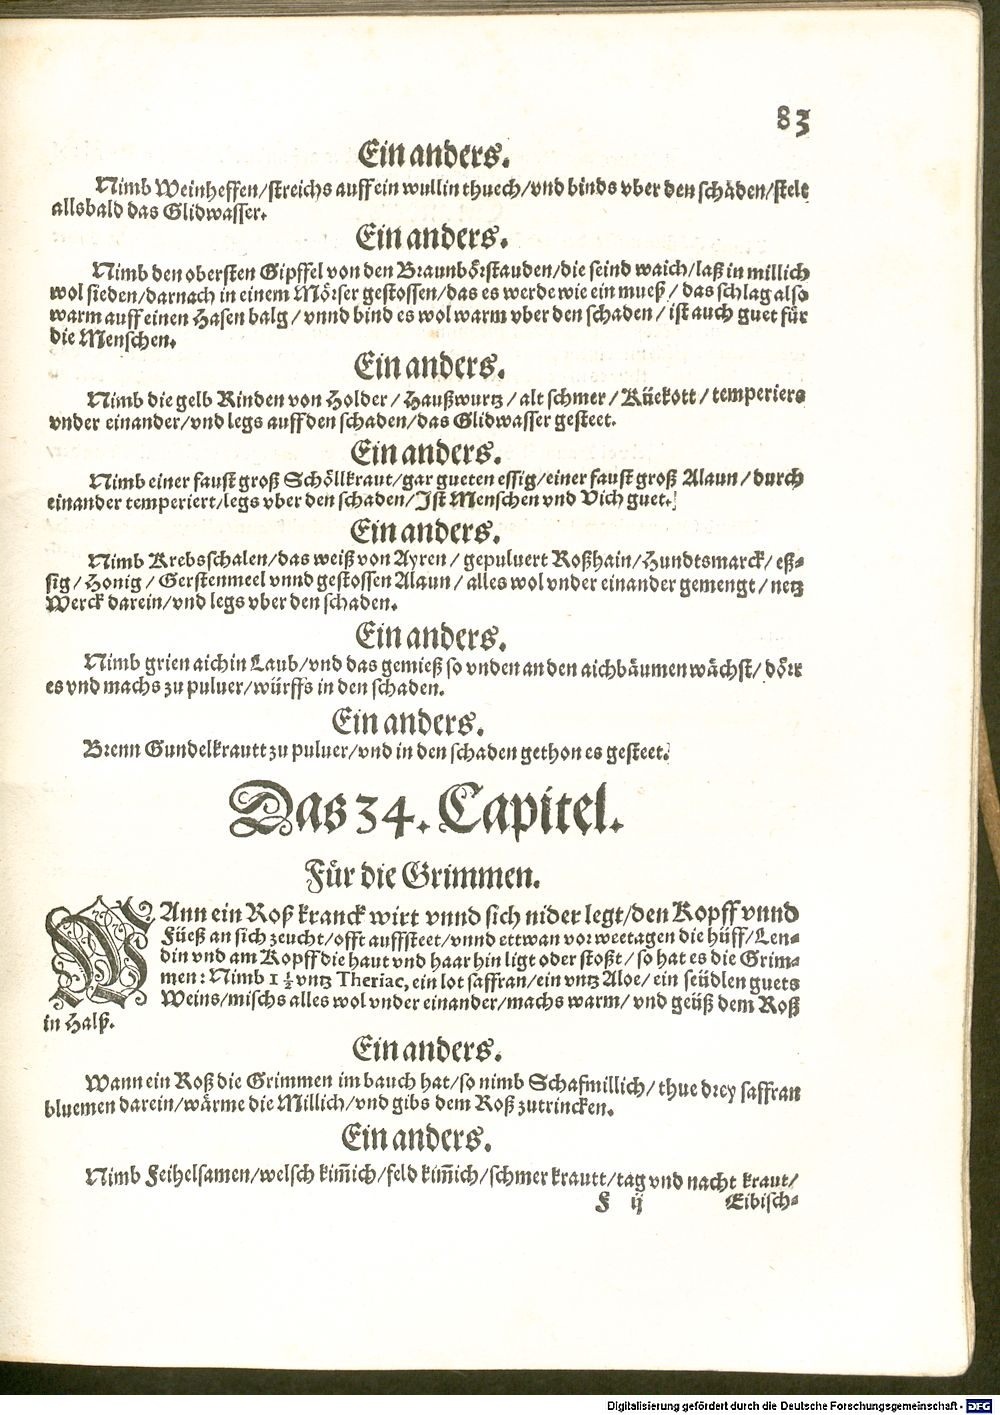 83
Ein anders.
Nimb Weinheffen/streichs auff ein wullin thuech/vnd binds vber den schäden/stelt
allsbald das Glidwasser.
Ein anders.
Nimb den obersten Gipffel von den Braunbörstauden/die seind waich/laß in millich
wol sieden/darnach in einem Mörser gestossen/das es werde wie ein mueß/ das schlag also
warm auff einen Hasen balg/ vnnd bind es wol warm vber den schaden/ ist auch guet für
die Menschen.
Ein anders.
Nimb die gelb Rinden von Holder/ Haußwurtz/ alt schmer/ Küekott/ temperiers
vnder einander/vnd legs auff den schaden/das Glidwasser gesteet.
Ein anders.
Nimb einer faust groß Schöllkraut/gar gueten essig/einer faust groß Alaun/ durch
einander temperiert/legs vber den schaden/Ist Menschen vnd Vich guet.
Ein anders.
Nimb Krebsschalen/das weiß von Ayren/ gepuluert Roßhain/Hundtsmarck/ eß-
sig/ Honig/ Gerstenmeel vnnd gestossen Alaun/ alles wol vnder einander gemengt/ netz
Werck darein/vnd legs vber den schaden.
Ein anders.
Nimb grien aichin Laub/vnd das gemieß so vnden an den aichbäumen wächst/ dörr
es vnd machs zu puluer/würffs in den schaden.
Ein anders.
Brenn Gundelkrautt zu puluer/vnd in den schaden gethon es gesteet.
Das 34. Capitel.
Für die Grimmen.
WAnn ein Roß kranck wirt vnnd sich nider legt/den Kopff vnnd
Füeß an sich zeucht/offt auffsteet/vnnd ettwan vor weetagen die hüff/Len-
din vnd am Kopff die haut vnd haar hin ligt oder stoßt/ so hat es die Grim-
men: Nimb 1 ½ vntz Theriac, ein lot saffran/ein vntz Aloe/ ein seüdlen guets
Weins/mischs alles wol vnder einander/machs warm/ vnd geüß dem Roß
in Halß.
Ein anders.
Wann ein Roß die Grimmen im bauch hat/so nimb Schafmillich/ thue drey saffran
bluemen darein/wärme die Millich/vnd gibs dem Roß zutrincken.
Ein anders.
Nimb Feihelsamen/welsch kim̄ich/feld kim̄ich/schmer krautt/tag vnd nacht kraut/
F ij Eibisch-
Digitalisierung gefördert durch die Deutsche Forschungsgemeinschaft - DFG